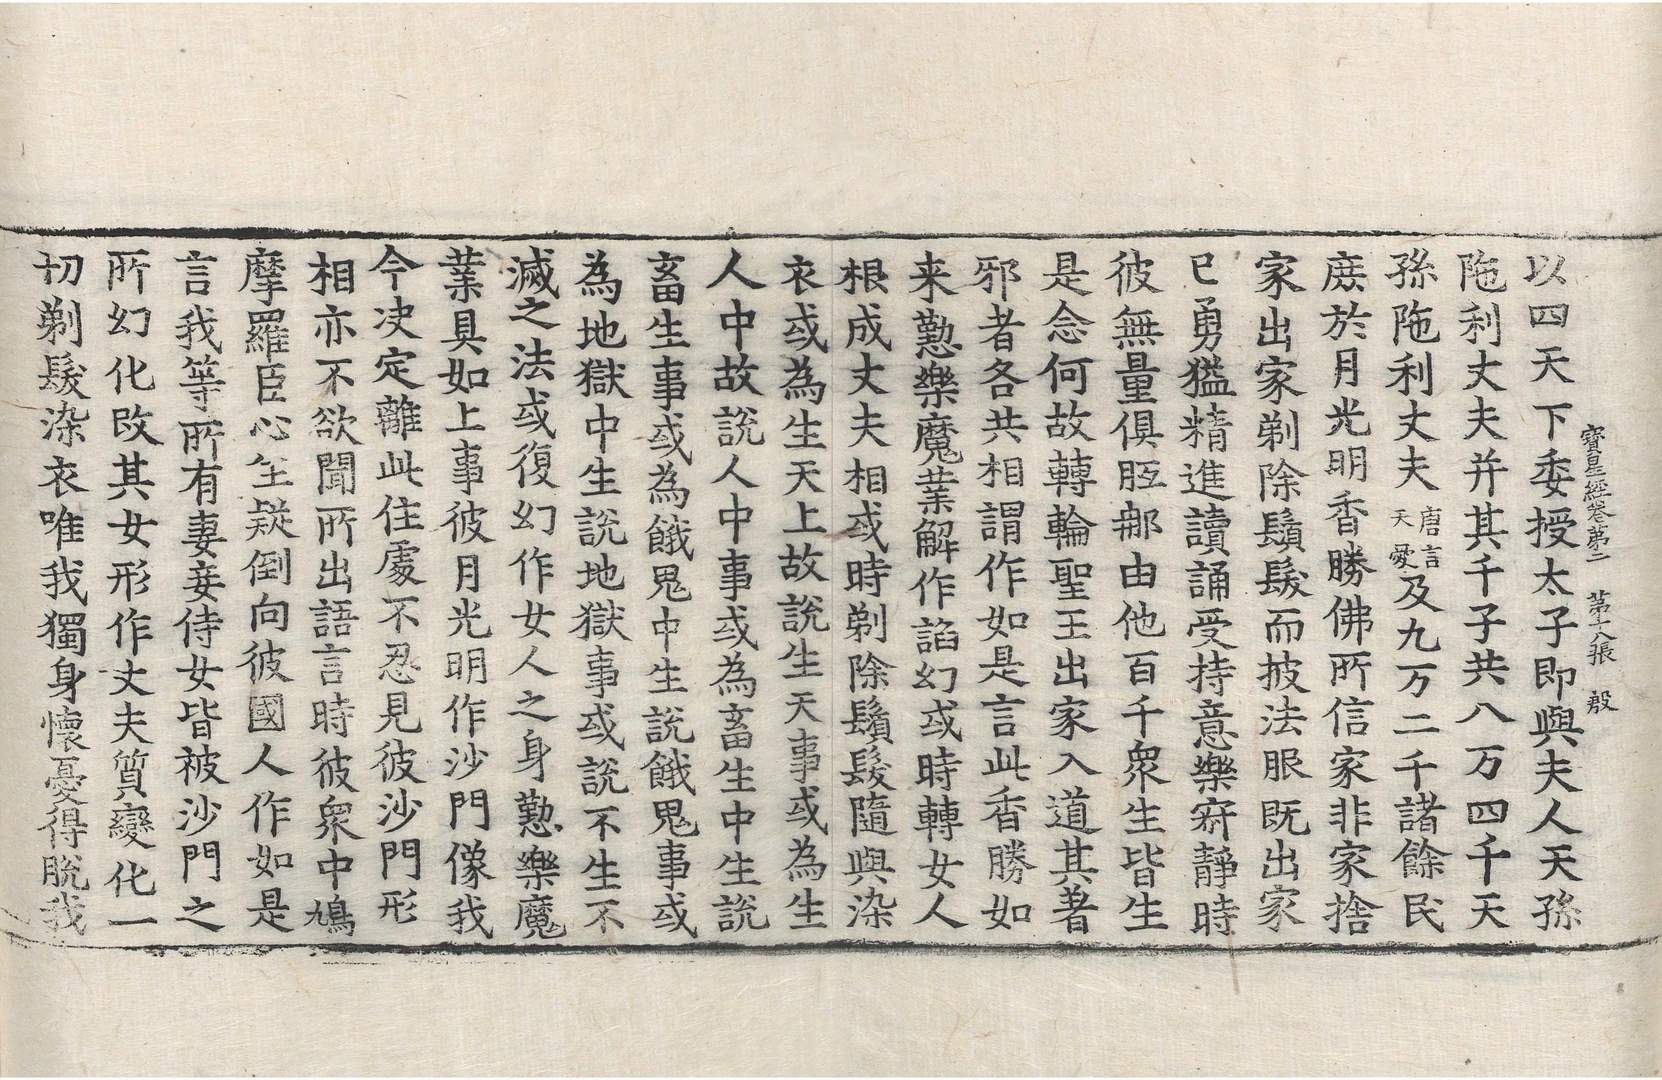 寶星經卷第二　第十八張　殷
以四天下委授太子即與夫人天孫
陁利丈夫并其千子共八万四千天
孫陁利丈夫唐言天愛及九万二千諸餘民
庶於月光明香勝佛所信家非家捨
家出家剃除鬚髮而披法服既出家
已勇猛精進讀誦受持意樂寂靜時
彼無量俱胝那由他百千衆生皆生
是念何故轉輪聖王出家入道其著
邪者各共相謂作如是言此香勝如
来懃樂魔業解作諂幻或時轉女人
根成丈夫相或時剃除鬚髮隨與染
衣或為生天上故說生天事或為生
人中故說人中事或為畜生中生說
畜生事或為餓鬼中生說餓鬼事或
為地獄中生說地獄事或說不生不
滅之法或復幻作女人之身懃樂魔
業具如上事彼月光明作沙門像我
今決定離此住處不忍見彼沙門形
相亦不欲聞所出語言時彼衆中鳩
摩羅臣心生疑倒向彼國人作如是
言我等所有妻妾侍女皆被沙門之
所幻化改其女形作丈夫質變化一
切剃髮染衣唯我獨身懷憂得脫我